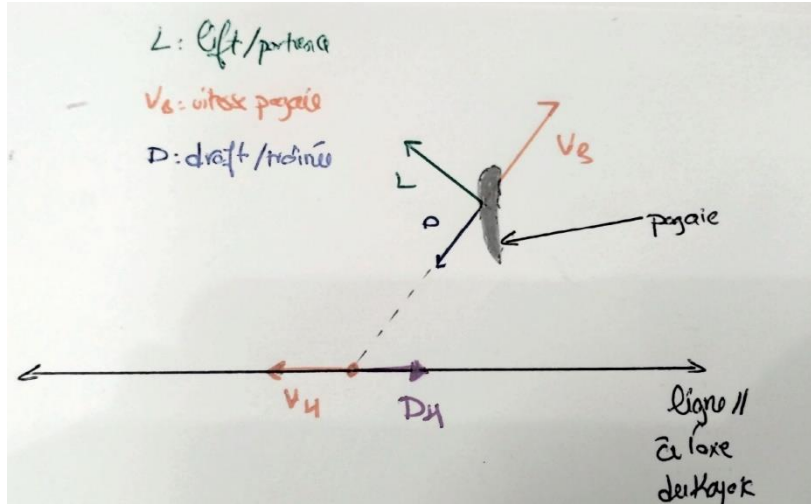 L: lift/portance
VB: vitesse pagaie
D: draft/traînée
VB
L
D
pagaie
VH
DH
ligne //
à l'axe
du Kayak